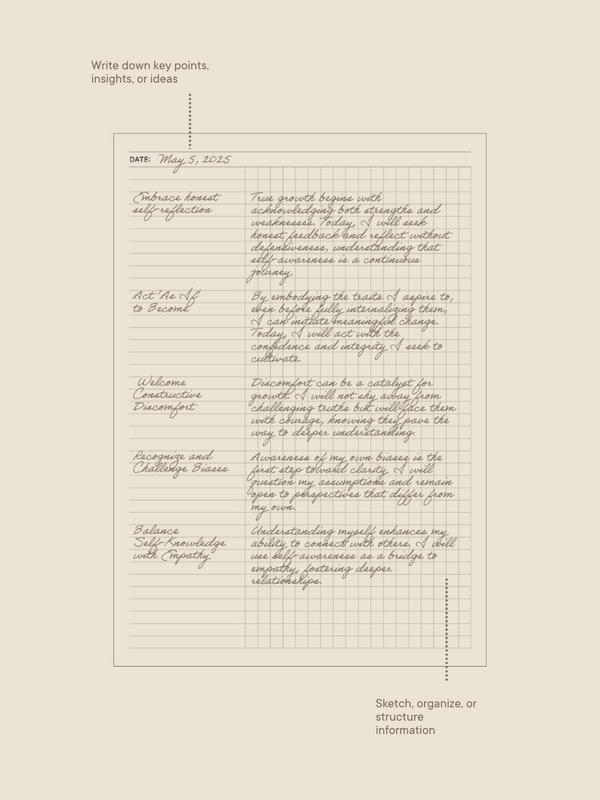 Write down key points,
insights, or ideas
DATE: May 5, 2025
Embrace honest
self-reflection
True growth begins with
acknowledging both strengths and
weaknesses. Today, I will seek
honest feedback and reflect without
defensiveness, understanding that
self-awareness is a continuous
journey.
Act 'As If'
to Become
By embodying the traits I aspire to,
even before fully internalizing them,
I can initiate meaningful change.
Today, I will act with the
confidence and integrity I seek to
cultivate.
Welcome
Constructive
Discomfort
Discomfort can be a catalyst for
growth. I will not shy away from
challenging truths but will face them
with courage, knowing they pave the
way to deeper understanding.
Recognize and
Challenge Biases
Awareness of my own biases is the
first step toward clarity. I will
question my assumptions and remain
open to perspectives that differ from
my own.
Balance
Self-Knowledge
with Empathy
Understanding myself enhances my
ability to connect with others. I will
use self-awareness as a bridge to
empathy, fostering deeper
relationships.
Sketch, organize, or
structure
information